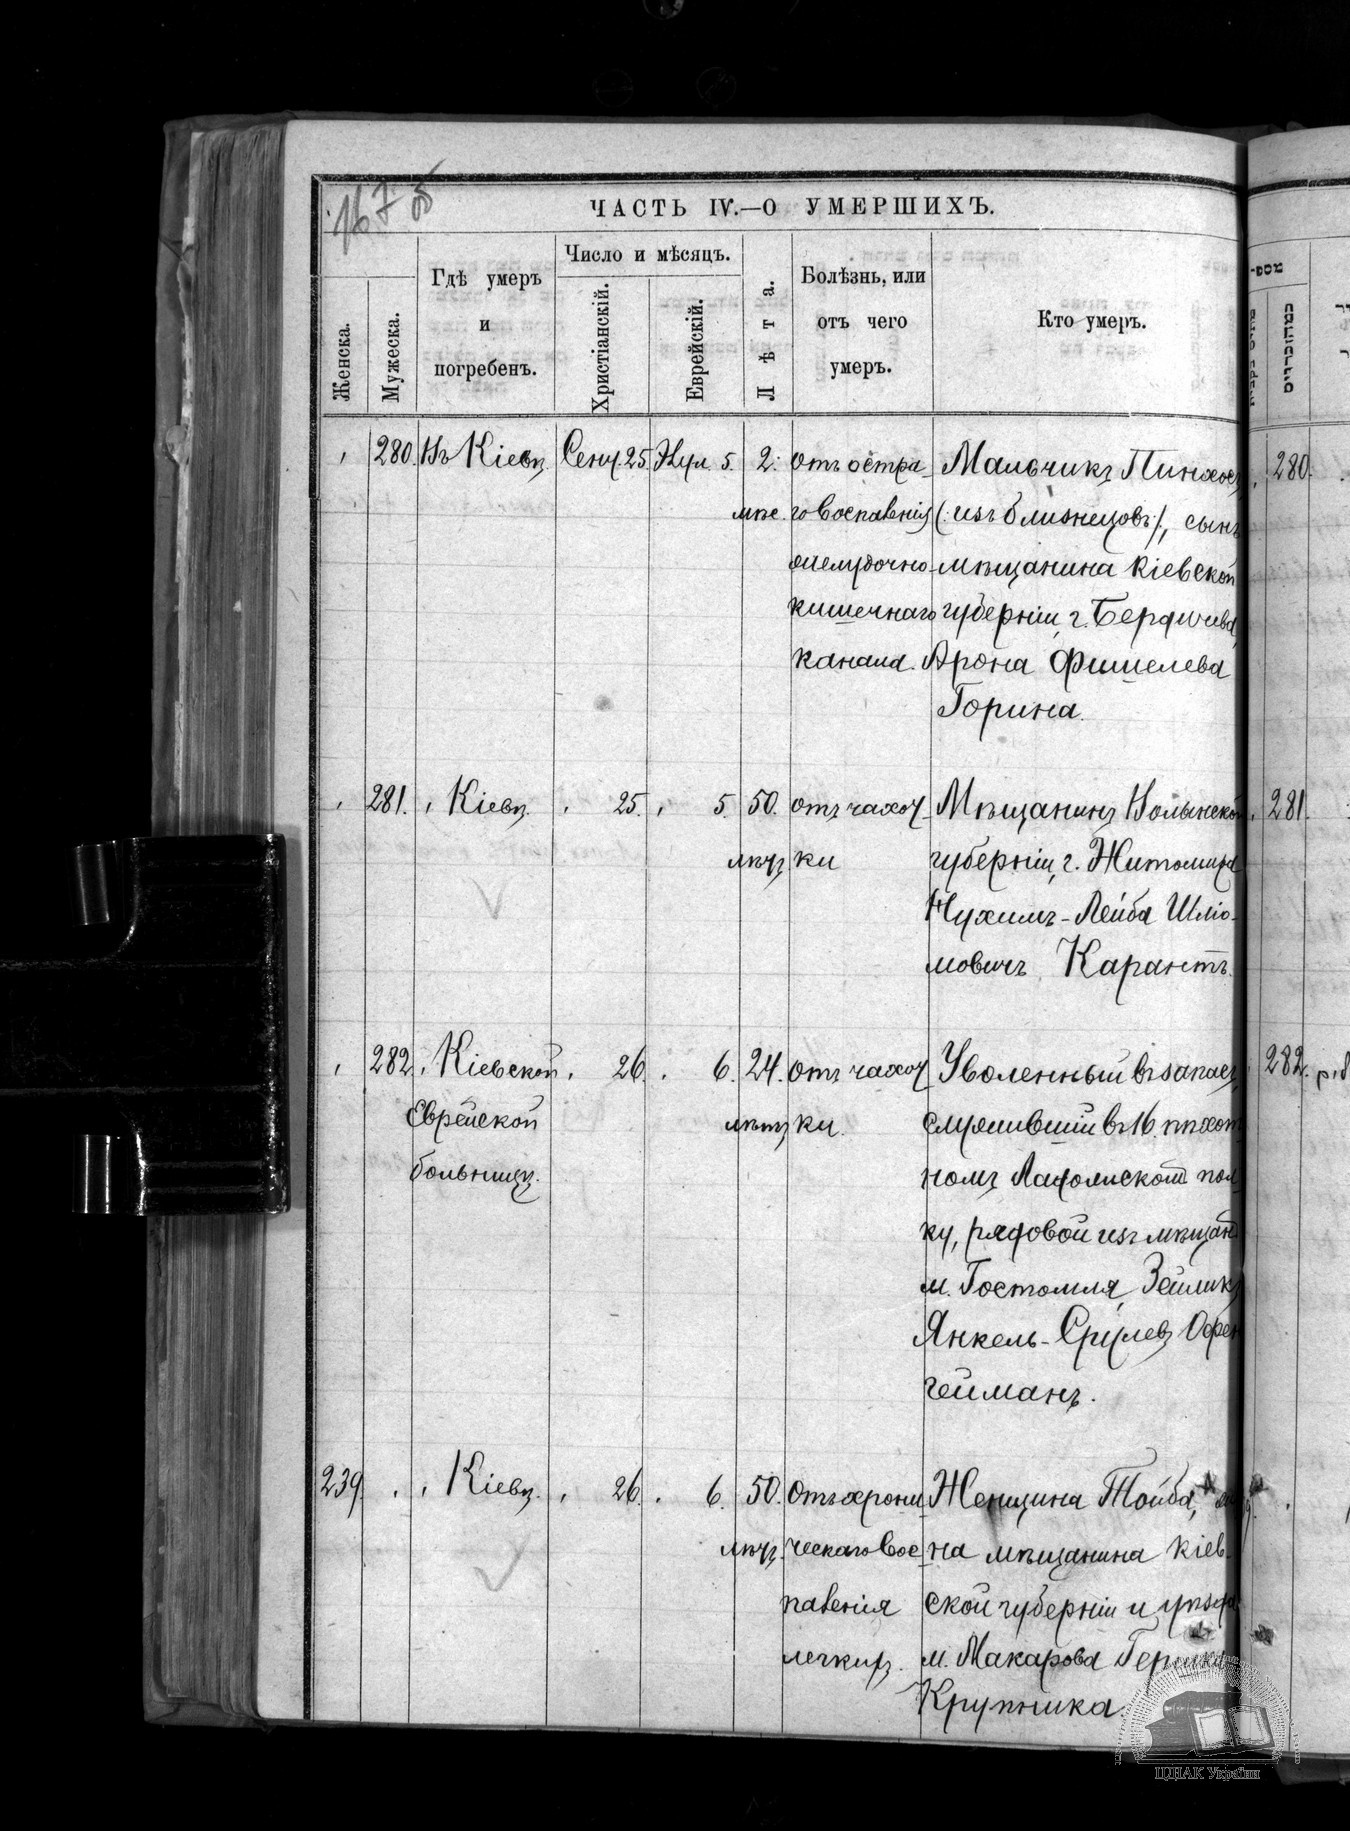 ЧАСТЬ IV.—О УМЕРШИХЪ.
Женска.
Мужеска.
Гдѣ умеръ
и
погребенъ.
Число и мѣсяцъ.
Христіанскій.
Еврейскій.
Лѣта.
Болѣзнь, или
отъ чего
умеръ.
Кто умеръ.
280. Въ Кіевѣ. Сент. 25. 5. 2. отъ остра- Мальчикъ Пинхосъ 280.
мѣс. го воспаленія (: изъ близнецовъ :), сынъ
желудочно- мѣщанина Кіевской
кишечнаго губерніи, г. Бердичева,
канала. Арона Фишелева
Горина.
281. Кіевѣ. 25. 5. 50. отъ чахот- Мѣщанинъ Волынской 281.
лѣтъ ки губерніи, г. Житомира
Нухимъ-Лейба Шлiо-
мовичъ Карантъ.
282. Кіевской 26. 6. 24. отъ чахот- Уволенный въ запасъ, 282.
Еврейской лѣтъ ки. служившій въ 16. пѣхот
больницѣ. номъ Ладожскомъ пол-
ку, рядовой изъ мѣщанъ
м. Гостомля, Зейликъ
Янкель-Срулевъ Офен
гейманъ.
239. Кіевѣ. 26. 6. 50. Отъ хрони- Женщина Тойба,
лѣтъ ческаго вос- на мѣщанина Кіев-
паленія ской губерніи и уѣзда
легкихъ. м. Макарова Гершка
Крупника.
ЦДІАК України